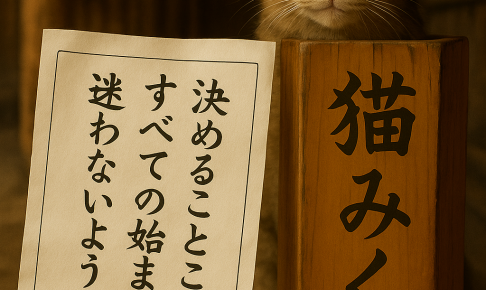 決めることこ
すべての始ま
迷わないよう
猫みく